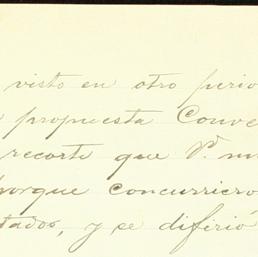 visto en otro perio
propuesta Conve
recorte que V. m
porque concurriero
tados, y se difirió